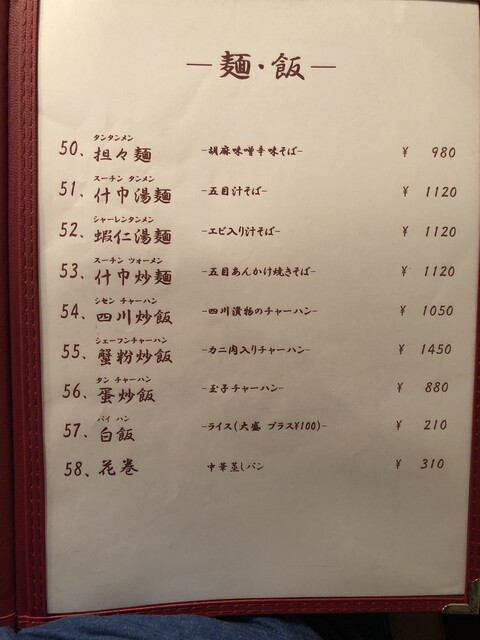 —麺・飯—
タンタンメン
50、担々麺 -胡麻味噌辛味そば- ¥ 980
スーチン タンメン
51、什巾湯麺 -五目汁そば- ¥ 1120
シャーレンタンメン
52、蝦仁湯麺 -エビ入り汁そば- ¥ 1120
スーチン ツォーメン
53、什巾炒麺 -五目あんかけ焼きそば- ¥ 1120
シセン チャーハン
54、四川炒飯 -四川漬物のチャーハン- ¥ 1050
シェーフンチャーハン
55、蟹粉炒飯 -カニ肉入りチャーハン- ¥ 1450
タン チャーハン
56、蛋炒飯 -玉子チャーハン- ¥ 880
パイ ハン
57、白飯 -ライス(大盛 プラス¥100)- ¥ 210
58、花巻 中華蒸しパン ¥ 310